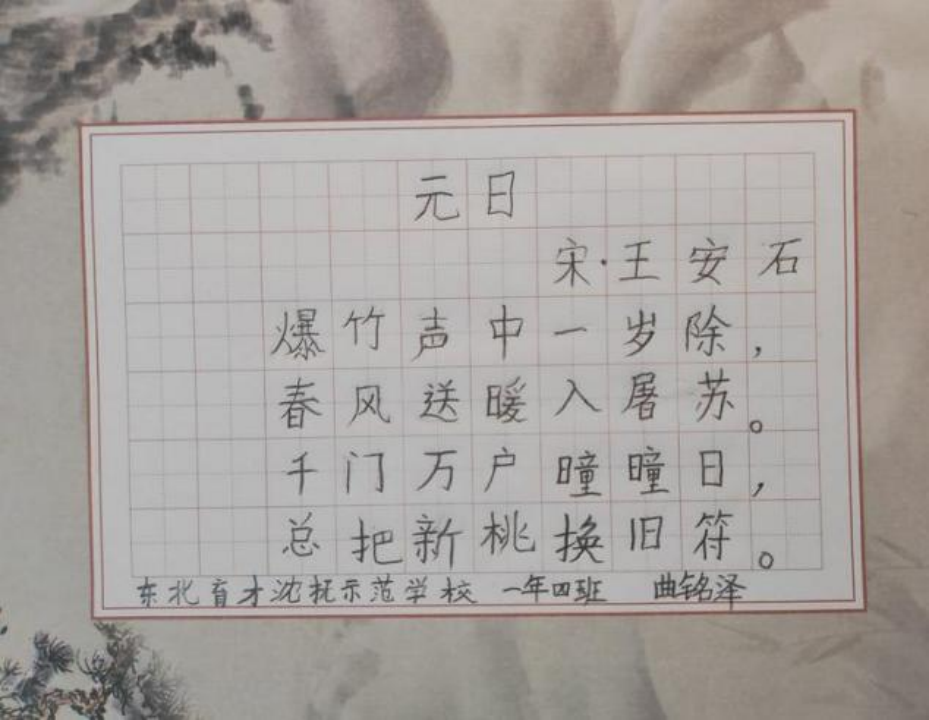 元日
宋·王安石
爆竹声中一岁除，
春风送暖入屠苏。
千门万户曈曈日，
总把新桃换旧符。
东北育才沈抚示范学校 一年四班 曲铭泽